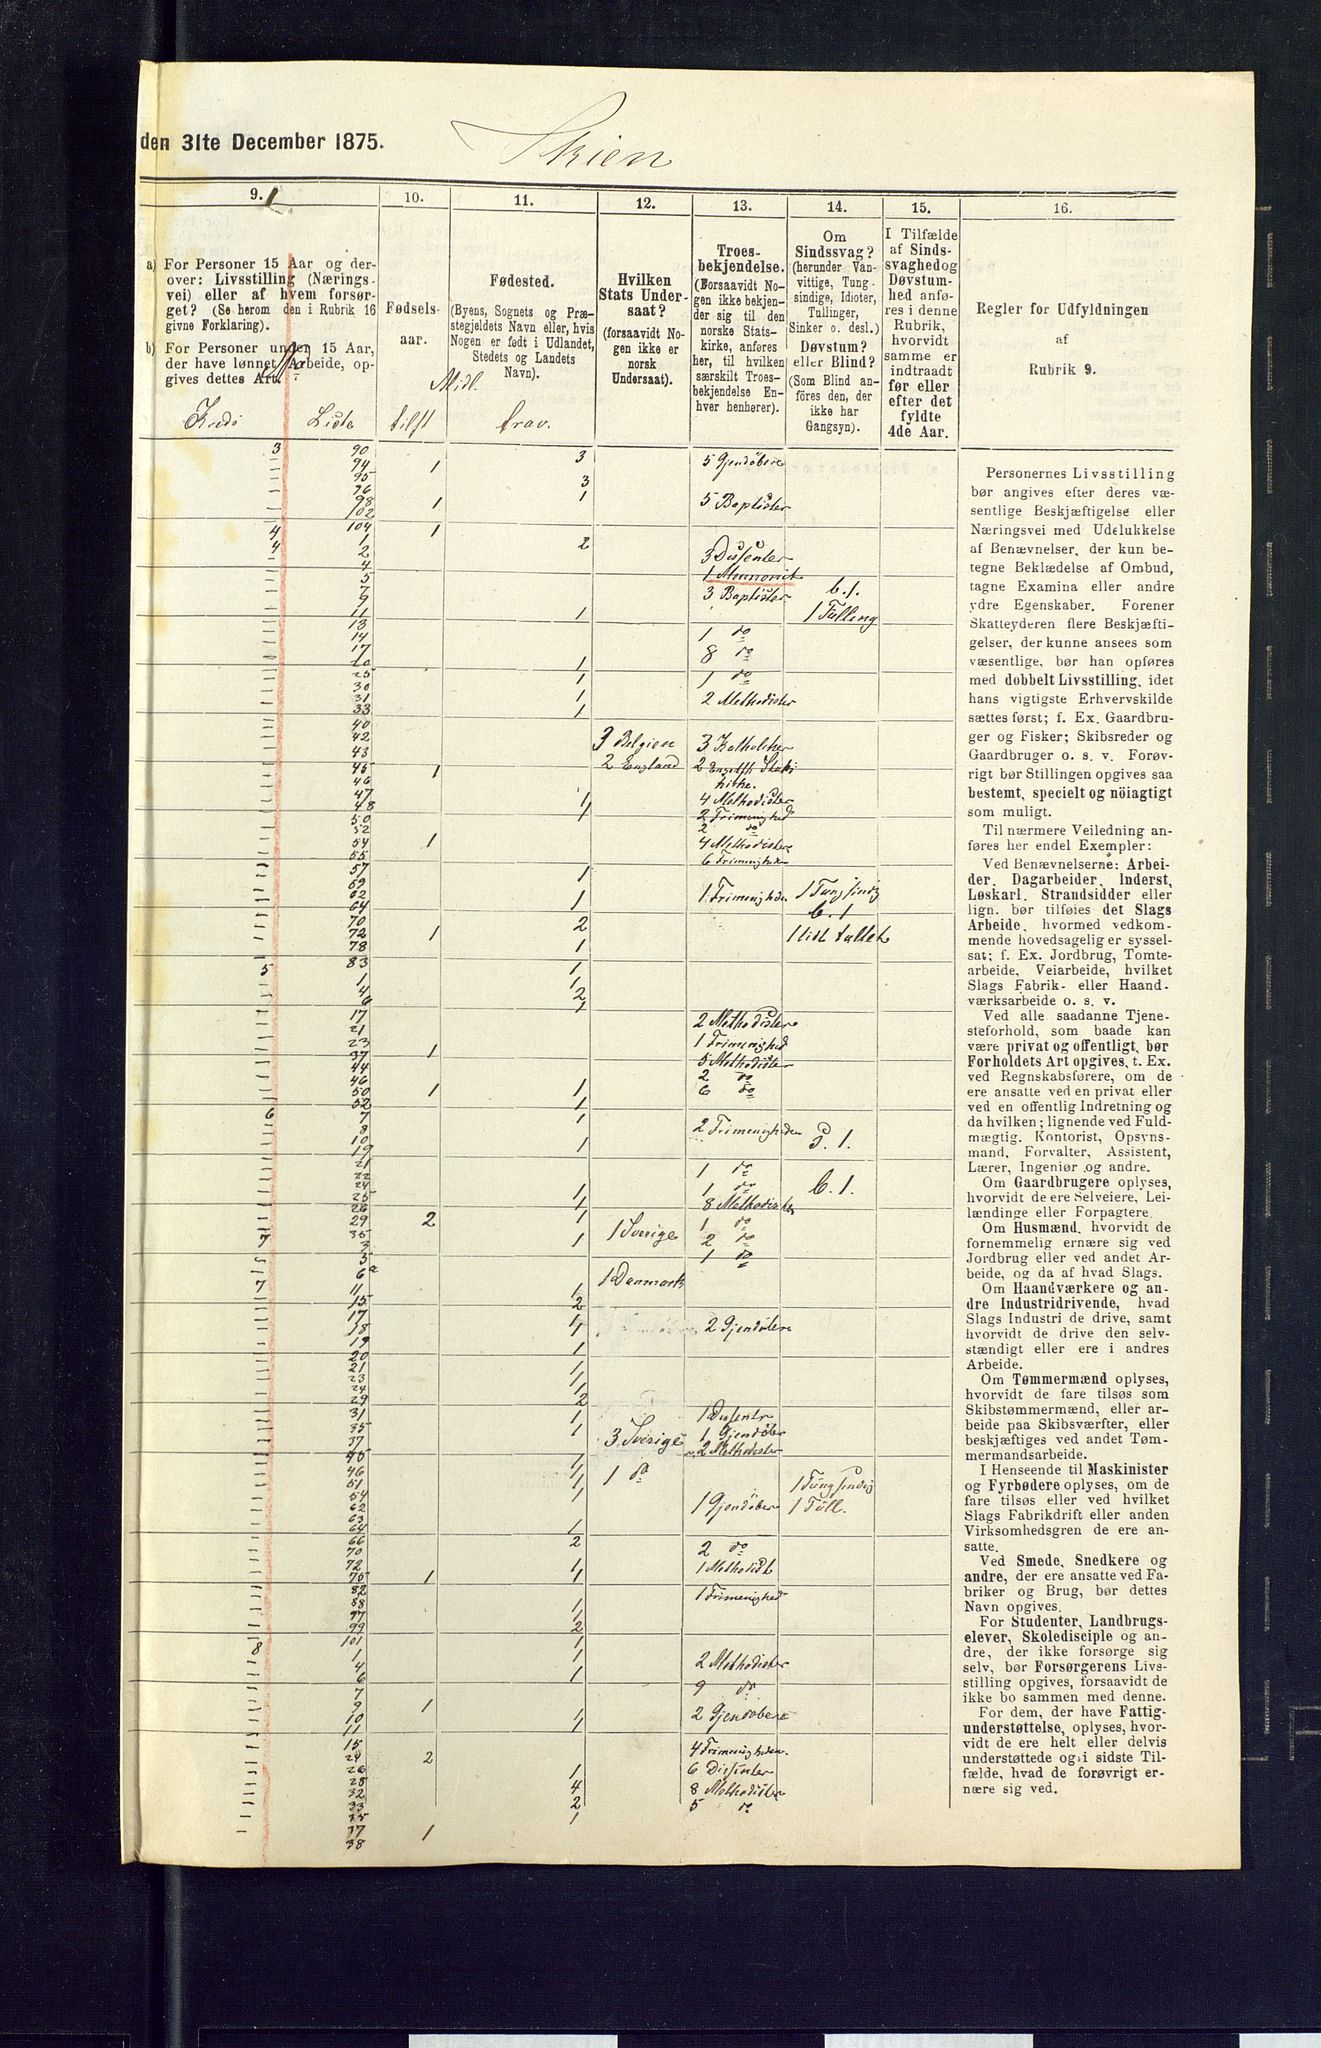 den 31te December 1875.
Skien
9. 1
10.
11.
12.
13.
14.
15.
16.
a) For Personer 15 Aar og der-
over: Livsstilling (Nærings-
vei) eller af hvem forsør-
get? (Se herom den i Rubrik 16
givne Forklaring).
b) For Personer under 15 Aar,
der have lønnet Arbeide, op-
gives dettes Art.
Kreds Liste
Fødsels-
aar.
Midl.
tilst
Fødested.
(Byens, Sognets og Præ-
stegjeldets Navn eller, hvis
Nogen er født i Udlandet,
Stedets og Landets
Navn).
frav.
Hvilken
Stats Under-
saat?
(forsaavidt No-
gen ikke er
norsk
Undersaat).
Troes-
bekjendelse.
(Forsaavidt No-
gen ikke bekjen-
der sig til den
norske Stats-
kirke, anføres
her, til hvilken
særskilt Troes-
bekjendelse En-
hver henhører).
Om
Sindssvag?
(herunder Van-
vittige, Tung-
sindige, Idioter,
Tullinger,
Sinker o. desl.)
Døvstum?
eller Blind?
(Som Blind an-
føres den, der
ikke har
Gangsyn).
I Tilfælde
af Sinds-
svaghed og
Døvstum-
hed anfø-
res i denne
Rubrik,
hvorvidt
samme er
indtraadt
før eller
efter det
fyldte
4de Aar.
Regler for Udfyldningen
af
Rubrik 9.
3 90 3
94 1 5 Gjendøbere
95
96 3
98 1 1 5 Baptister
102
104 1
4 1 2
4 2 3 Dissenter
4 1 Mormonit
5
7 3 Baptister b.1.
9
11 1 1 Tulling
13 1 do
14
17 8 do
20 1
25 1 1 do
30
31 1 2 Methodister
33 1
40
42 3 Belgien 3 Katholiker
43
45 1 2 England 2 Engelsk Stats
46 kirke.
47 1 4 Methodister
48 1
50 2 Frimenighed
52 2 do
54 1 4 Methodister
55 6 Frimenigheden
57 1
59
62 1 1 Frimenigheden 1 Tungsindig
64 b.1
70 2
72 1 1 1 lidt tullet
78
83
5 1 1
4 1
6 2
17 1 2 Methodister
21
23 1 Frimenighed
37 1 5 Methodister
44
46 2 do
50 1 1 6 do
52 1
6 7 1
8 2 Frimenigheden
10 1 D. 1.
19
21 1 do
22
24 1 1 do b. 1.
25 1 8 Methodister
26
29 2 1 1 do
35 1 Sverige 2 do
7 3 1
5 1 do
6a 1 Danmark
7 11 1
15 2
17 1
18 1 2 Gjendøbere
19 1
20
21 1
23 1
24 1
29 2
31 1 1 Dissenter
35 1 1 Gjendøber
37 3 Sverige 2 Methodister
45 1
46 1 1 do
51 1 1 Tungsindig
54 1 1 Gjendøber 1 Tull.
62
63
64 1
66 2
70 2 do
72 1 1 Methodist
75 1 1
82 1 Frimenighed
88 1
97 1
99 2
101 1
8 1 1 2 Methodister
4 1
6
7 9 do
9 1
10 1 2 Gjendøbere
11 1
15 4 Frimenigheden.
24 2
26 1 6 Dissenter
28 4
32 2 8 Methodister
33 5 do
35 1
37
38 1
Personernes Livsstilling
bør angives efter deres væ-
sentlige Beskjæftigelse eller
Næringsvei med Udelukkelse
af Benævnelser, der kun be-
tegne Beklædelse af Ombud,
tagne Examina eller andre
ydre Egenskaber. Forener
Skatteyderen flere Beskjæfti-
gelser, der kunne ansees som
væsentlige, bør han opføres
med dobbelt Livsstilling, idet
hans vigtigste Erhvervskilde
sættes først; f. Ex. Gaardbru-
ger og Fisker; Skibsreder og
Gaardbruger o. s. v. Forøv-
rigt bør Stillingen opgives saa
bestemt, specielt og nöiagtigt
som muligt.
Til nærmere Veiledning an-
føres her endel Exempler:
Ved Benævnelserne: Arbei-
der, Dagarbeider, Inderst,
Løskarl, Strandsidder eller
lign. bør tilføies det Slags
Arbeide, hvormed vedkom-
mende hovedsagelig er syssel-
sat; f. Ex. Jordbrug, Tomte-
arbeide, Veiarbeide, hvilket
Slags Fabrik- eller Haand-
værksarbeide o. s. v.
Ved alle saadanne Tjene-
steforhold, som baade kan
være privat og offentligt, bør
Forholdets Art opgives, t. Ex.
ved Regnskabsførere, om de
ere ansatte ved en privat eller
ved en offentlig Indretning og
da hvilken; lignende ved Fuld-
mægtig, Kontorist, Opsyns-
mand, Forvalter, Assistent,
Lærer, Ingeniør og andre.
Om Gaardbrugere oplyses,
hvorvidt de ere Selveiere, Lei-
lændinge eller Forpagtere.
Om Husmænd, hvorvidt de
fornemmelig ernære sig ved
Jordbrug eller ved andet Ar-
beide, og da af hvad Slags.
Om Haandværkere og an-
dre Industridrivende, hvad
Slags Industri de drive, samt
hvorvidt de drive den selv-
stændigt eller ere i andres
Arbeide.
Om Tømmermænd oplyses,
hvorvidt de fare tilsøs som
Skibstømmermænd, eller ar-
beide paa Skibsværfter, eller
beskjæftiges ved andet Tøm-
mermandsarbeide.
I Henseende til Maskinister
og Fyrbødere oplyses, om de
fare tilsøs eller ved hvilket
Slags Fabrikdrift eller anden
Virksomhedsgren de ere an-
satte.
Ved Smede, Snedkere og
andre, der ere ansatte ved Fa-
briker og Brug, bør dettes
Navn opgives.
For Studenter, Landbrugs-
elever, Skoledisciple og an-
dre, der ikke forsørge sig
selv, bør Forsørgerens Livs-
stilling opgives, forsaavidt de
ikke bo sammen med denne.
For dem, der have Fattig-
understøttelse, oplyses, hvor-
vidt de ere helt eller delvis
understøttede og i sidste Til-
fælde, hvad de forøvrigt er-
nære sig ved.